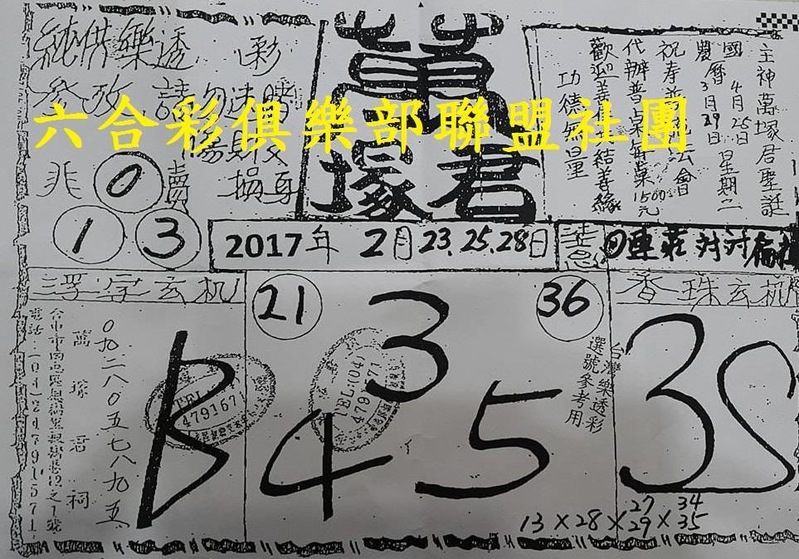 純供樂透彩
參攷請勿迷賭
傷財又
損身
兆
0
賣
1
3
萬
塚君
主神萬塚君聖誕
國4月25日星期二
農曆3月29日
祝壽普 法會
代辦普桌每桌1500元
歡迎善信 結善緣
功德無量
六合彩俱樂部聯盟社團
2017年 2月23.25.28日
四連莊
浮字玄机
21
36
香珠玄机
萬塚君祠
〇九二八〇五七八九五
B
3
4
5
3S
TEL:(04)
479167
TEL:(04)
479167
台灣樂透彩
選號參考用
13×28×27 29×34 35